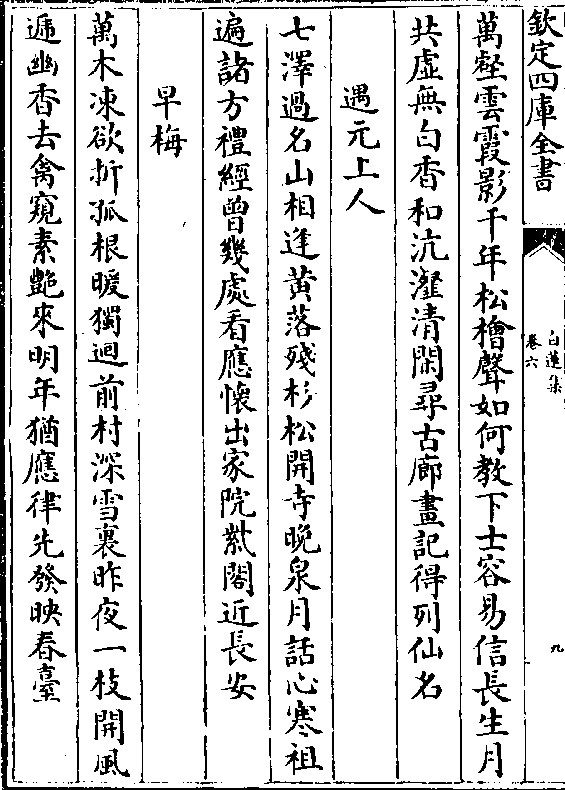 欽定四庫全書
白蓮集
卷六
九
萬壑雲霞影千年松檜聲如何教下士容易信長生月
共虛無白香和沆瀣清閑尋古廊畫記得列仙名
遇元上人
七澤過名山相逢黄落殘杉松開寺晚泉月話心寒祖
遍諸方禮經曾幾處看應懷出家院紫閣近長安
早梅
萬木凍欲折孤根暖獨迴前村深雪裏昨夜一枝開風
遞幽香去禽窺素艷來明年猶應律先發映春臺